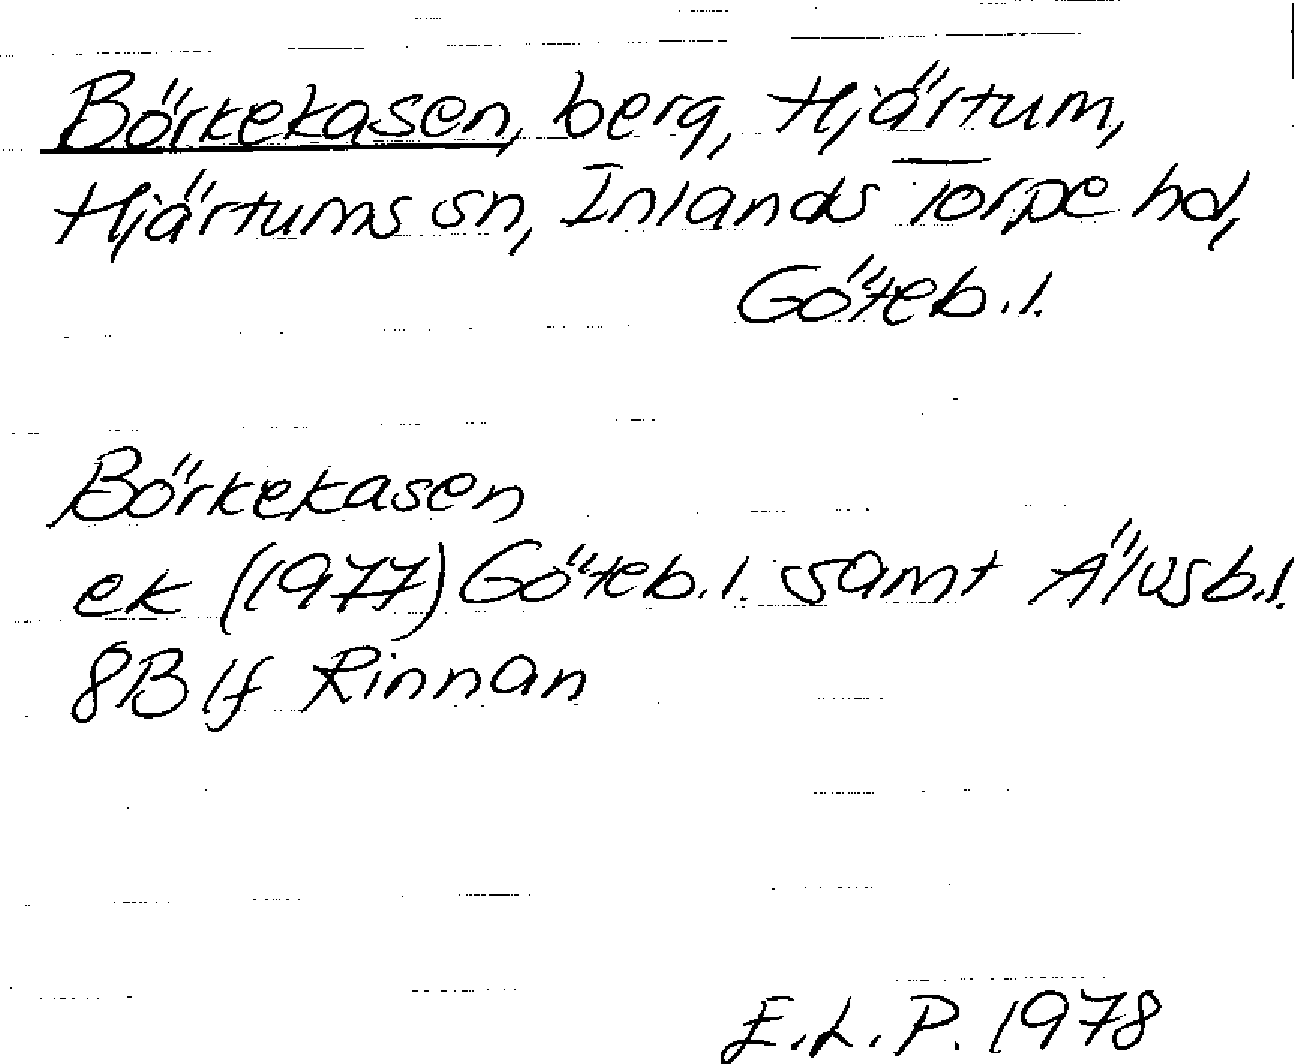 Börkekasen, berg, Hjärtum,
Hjärtums sn, Inlands Torpe hd,
Göteb.l.
Börkekasen
ek (1977) Göteb.l. samt Älvsb.l.
8B 1f Rinnan
E.L.P. 1978